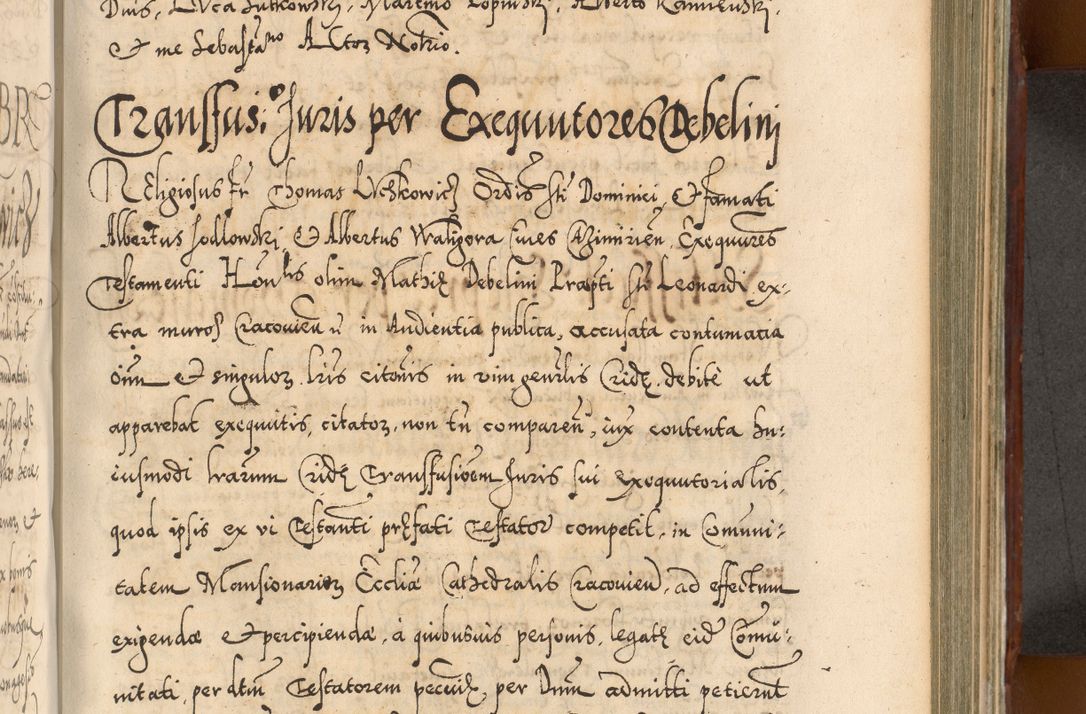 Dnis, Luca Lutkowski, Maremo Lopinski, Alberto Kamienski,
Et me Sebastno Altoz Notrio.
Transfusio Juris per Exequutores Debelini
Religiosus fr Thomas Uchkowicz Ordis Sti Dominici, Et famati
Albertus Sodlowski, Et Albertus Waligora Cives Cazimirien, Exequures
Testamenti Honlis olim Mathię Debelini Præpti Sti Leonardi ex-
tra muros Cracovien in Audientia publica, accusata contumatia
oim Et singulor Iris citonis in vim genrlis Cridę debite ut
apparebat exequutis, citator, non tn comparen, iux contenta hu-
iusmodi lrarum Cridę Transfusioem Juris sui exequutorialis,
quod ipsis ex vi Testanti pręfati Testator competit, in Comuni-
tatem Mansionarior Eccliæ Cathedralis Cracovien, ad effectum
exigendæ Et percipiendæ, à quibusvis personis, legatę eid Comu-
nitati, per dtum Testatorem pecuię, per Dnum admitti petierunt